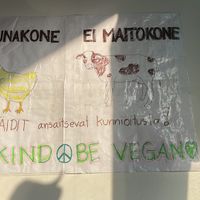 UNAKONE EI MAITOKONE
ÄIDIT ansaitsevat kunnioitusta
KIND BE VEGAN